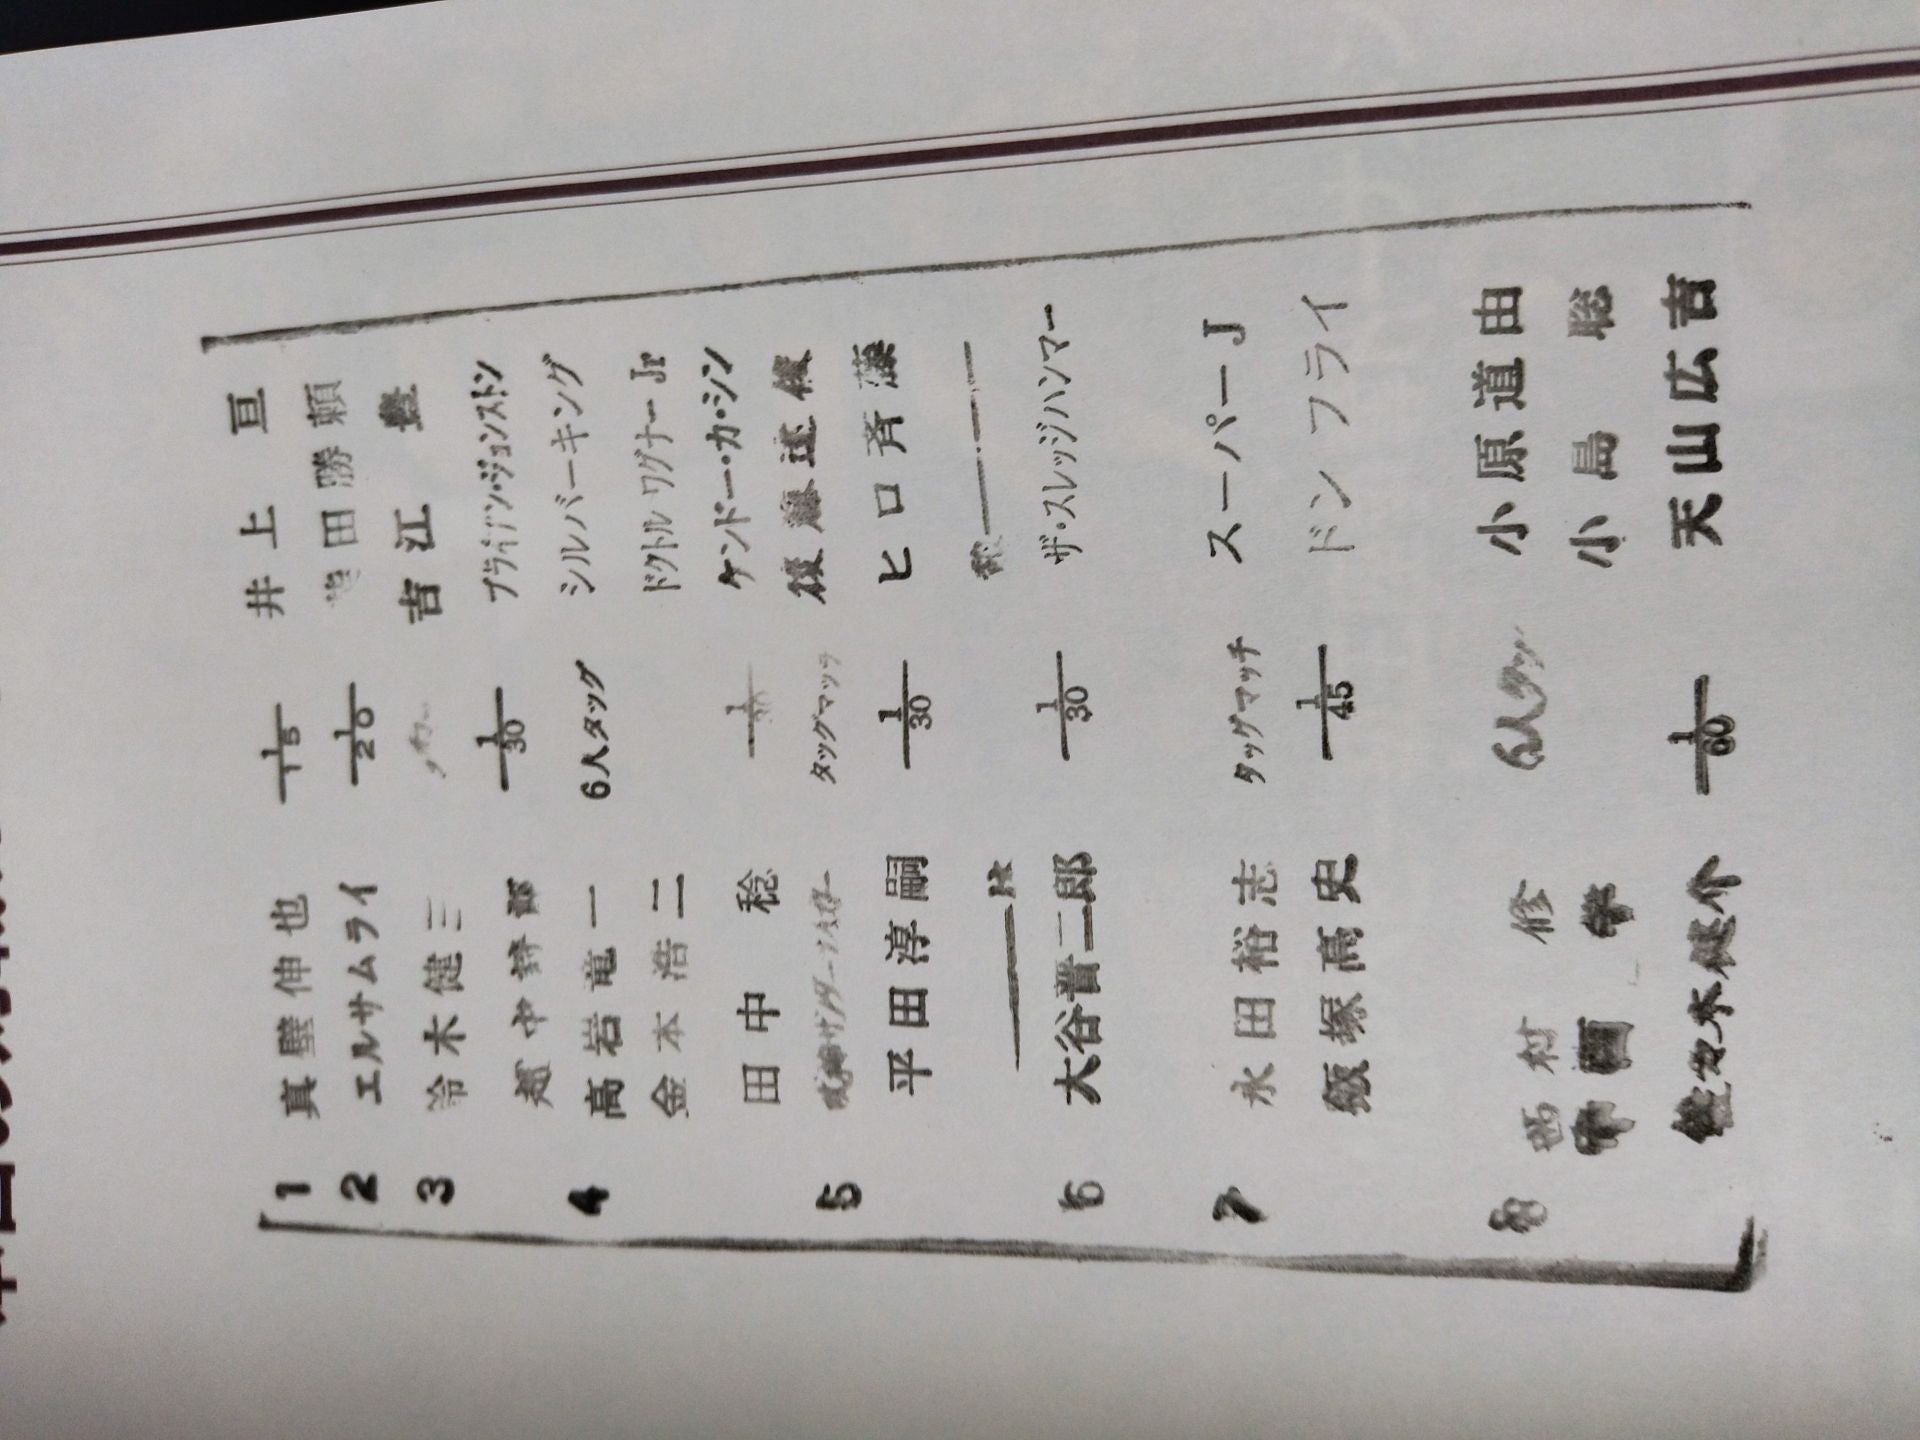 1 真壁伸也 1/15 井上亘
2 エルサムライ 1/20 田勝頼
3 鈴木健三 吉江豊
越中詩郎 1/30 ブライアン・ジョンストン
4 高岩竜一 6人タッグ シルバーキング
金本浩二 ドクトルワグナーJr
田中稔 ケンドー・カ・シン
5 タッグマッチ 後藤達俊
平田淳嗣 1/30 ヒロ斉藤
6 大谷晋二郎 1/30 ザ・スレッジハンマー
7 永田裕志 タッグマッチ スーパーJ
飯塚高史 1/45 ドンフライ
8 西村修 6人タッグ 小原道由
中西学 小島聡
佐々木健介 1/60 天山広吉